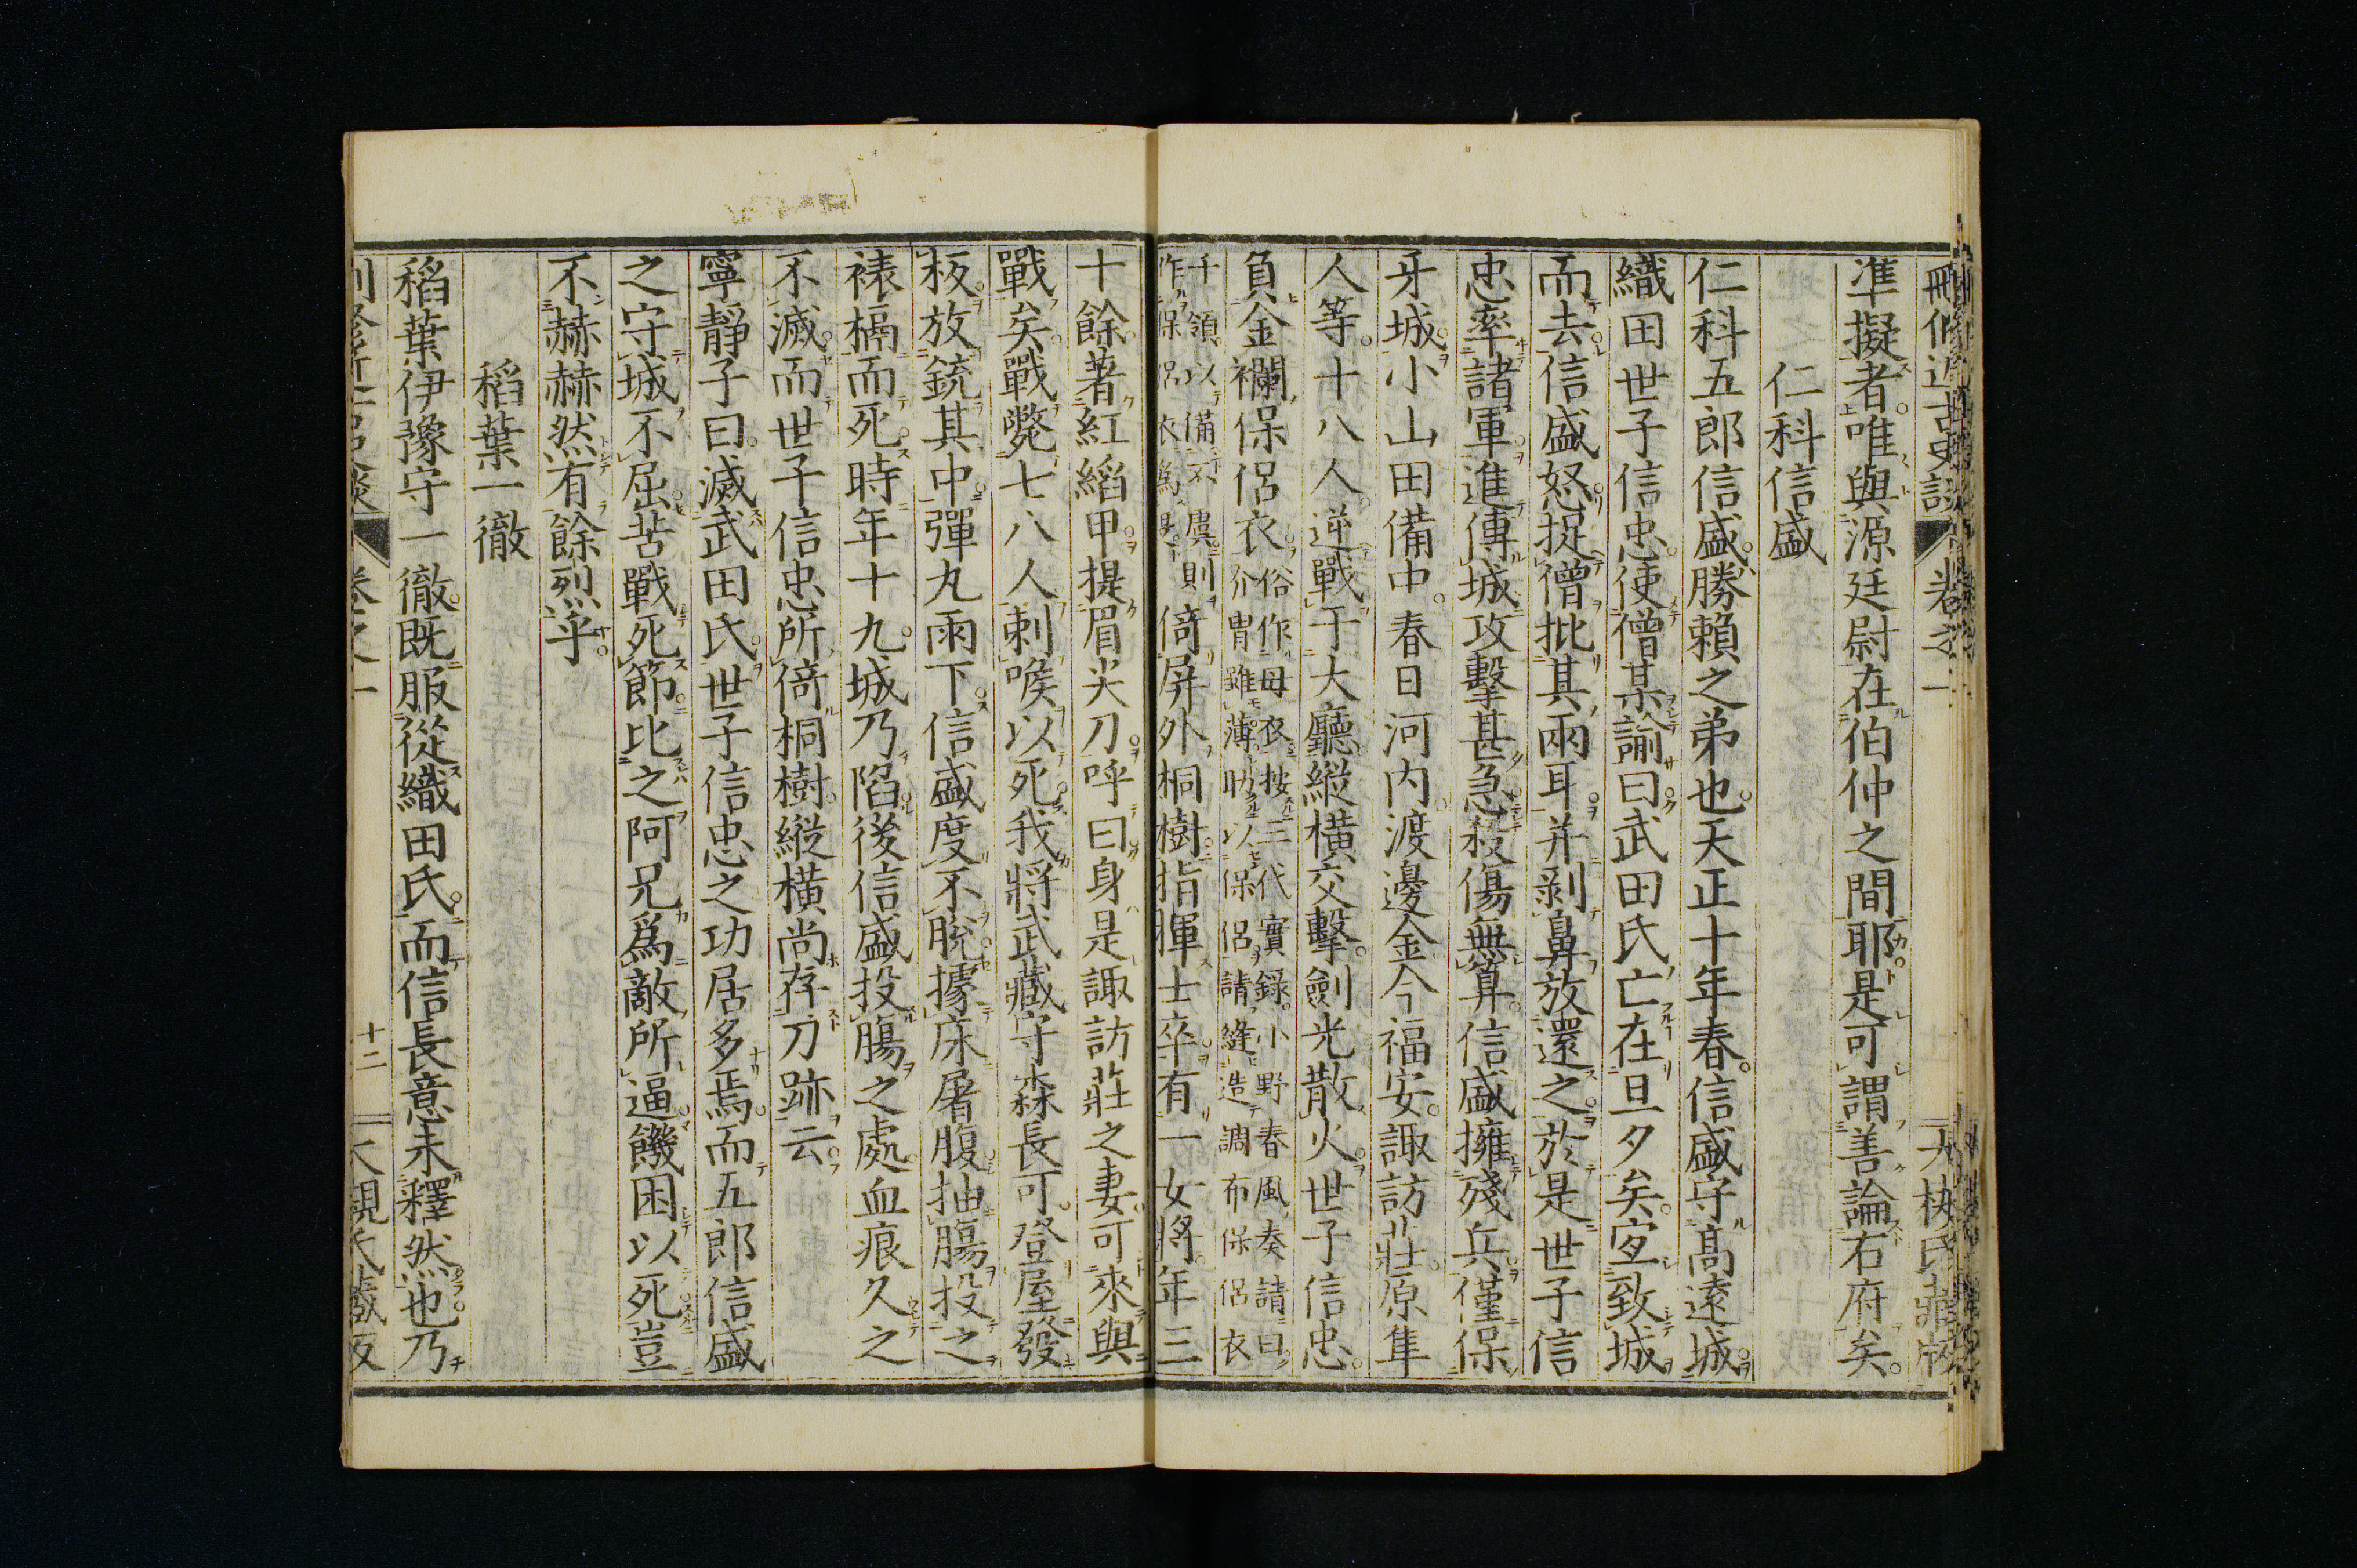 刪修近古史談 卷之一 大槻氏藏版
準擬者。唯與源廷尉在伯仲之間耶。是可謂善論右府矣。
仁科信盛
仁科五郎信盛。勝賴之弟也。天正十年春。信盛守高遠城。
織田世子信忠。使僧某諭曰。武田氏亡在旦夕矣。宜致城
而去。信盛怒。捉僧批其兩耳。并剝鼻放還之。於是世子信
忠率諸軍。進傅城攻擊甚急。殺傷無算。信盛擁殘兵。僅保
牙城。小山田備中。春日河内。渡邊金。今福安。諏訪莊。原隼
人等。十八人。逆戰于大廳。縱橫交擊。劍光散火。世子信忠。
負金襴保侶衣。俗作母衣。按三代實錄。小野春風奏請曰。
介冑雖薄。助以保侶。請縫造調布保侶衣
千領。以備不虞。則
作保侶衣爲是。
倚屏外桐樹。指揮士卒。有一女將。年三
十餘。著紅縚甲。提眉尖刀。呼曰。身是諏訪莊之妻。可來與
戰矣。戰斃七八人。刺喉以死。我將武藏守森長可。登屋發
板。放銃其中。彈丸雨下。信盛度不脫。據床屠腹。抽腸投之
裱槅而死。時年十九。城乃陷。後信盛投腸之處。血痕久之
不滅。而世子信忠所倚桐樹。縱橫尚存刀跡云。
寧靜子曰。滅武田氏。世子信忠之功居多焉。而五郎信盛
之守城。不屈苦戰死節。比之阿兄爲敵所逼。饑困以死。豈
不赫赫然有餘烈乎。
稻葉一徹
稻葉伊豫守一徹。既服從織田氏。而信長意未釋然也。乃
刪修近古史談 卷之一 十二 大槻氏藏版